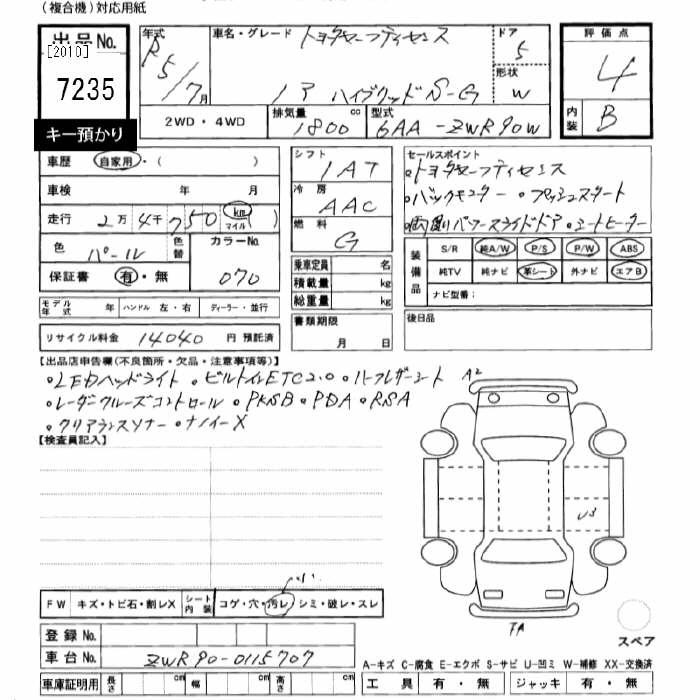 (複合機)対応用紙
出品No. [2010] 7235
キー預かり
年式 R5/7月
車名・グレード トヨタセーフティセンス
ノア ハイブリッド S-G
ドア 5
形状 W
評価点 4
内装 B
2WD・4WD 排気量 1800cc 型式 6AA-ZWR90W
車歴 自家用・( )
車検 年 月
走行 2万4千750 km マイル ( )
色 パール 色替 カラーNo. 070
保証書 有・無
シフト IAT
冷房 AAC
燃料 G
乗車定員 名
積載量 kg
総重量 kg
書類期限
月 日
セールスポイント
・トヨタセーフティセンス
・バックモニター ・プッシュスタート
・両側パワースライドドア ・シートヒーター
装備品 S/R 純A/W P/S P/W ABS
純TV 純ナビ 革シート 外ナビ エアB
ナビ型番:
後日品
モデル年式 年 ハンドル 左・右 ディーラー・並行
リサイクル料金 14040 円 預託済
【出品店申告欄(不良箇所・欠品・注意事項等)】
・LEDヘッドライト ・ビルトインETC2.0 ・ハーフレザーシート
・レーダークルーズコントロール ・PKSB ・PDA ・RSA
・クリアランスソナー ・ナノイーX
【検査員記入】
A2
U3
FW キズ・トビ石・割レX シート内装 コゲ・穴・汚レ・シミ・破レ・スレ
登録No.
車台No. ZWR90-0115707
車庫証明用 長さ cm 幅 cm 高さ cm
スペア
A-キズ C-腐食 E-エクボ S-サビ U-凹ミ W-補修 XX-交換済
工具 有・無 ジャッキ 有・無